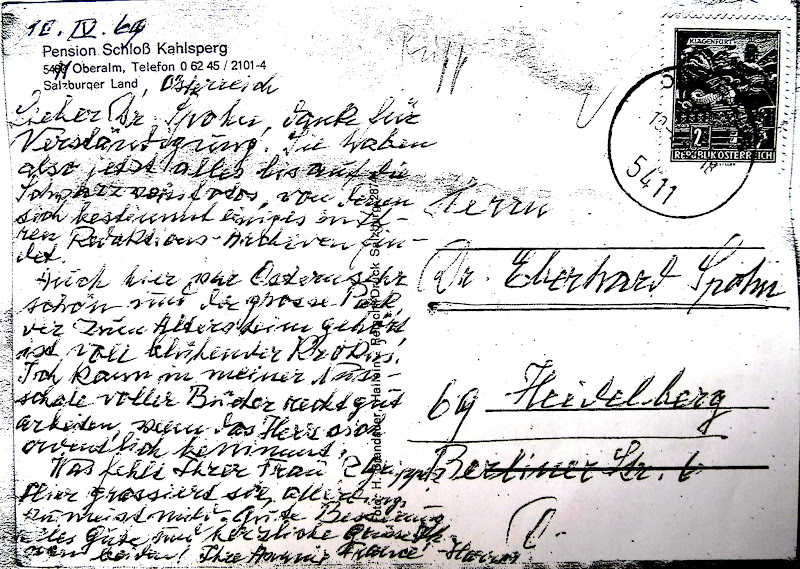 10. IV. 69
Pension Schloß Kahlsperg
5411 Oberalm, Telefon 0 62 45 / 2101-4
Salzburger Land, Österreich
Lieber Dr. Spohn, danke für
Verständigung! Sie haben
also jetzt alles bis auf die
von denen
sich bestimmt einiges in Ih-
ren Redaktions-Archiven fin-
det.
Auch hier war Ostern sehr
schön und der grosse Park,
der zum Altersheim gehört
ist voll blühender Krokus!
Ich kann in meiner Nuss-
schale voller Bücher recht gut
arbeiten, wenn das Herz
ordentlich
Was fehlt Ihrer Frau? Grippe?
Hier grassiert sie, allerdings
zumeist mild. Gute Besserung
alles Gute und herzliche Grüsse Ih-
nen beiden! Ihre
Herrn
Dr. Eberhard Spohn
69 Heidelberg
Berliner Str. 6
KLAGENFURT
2
REPUBLIK ÖSTERREICH
5411